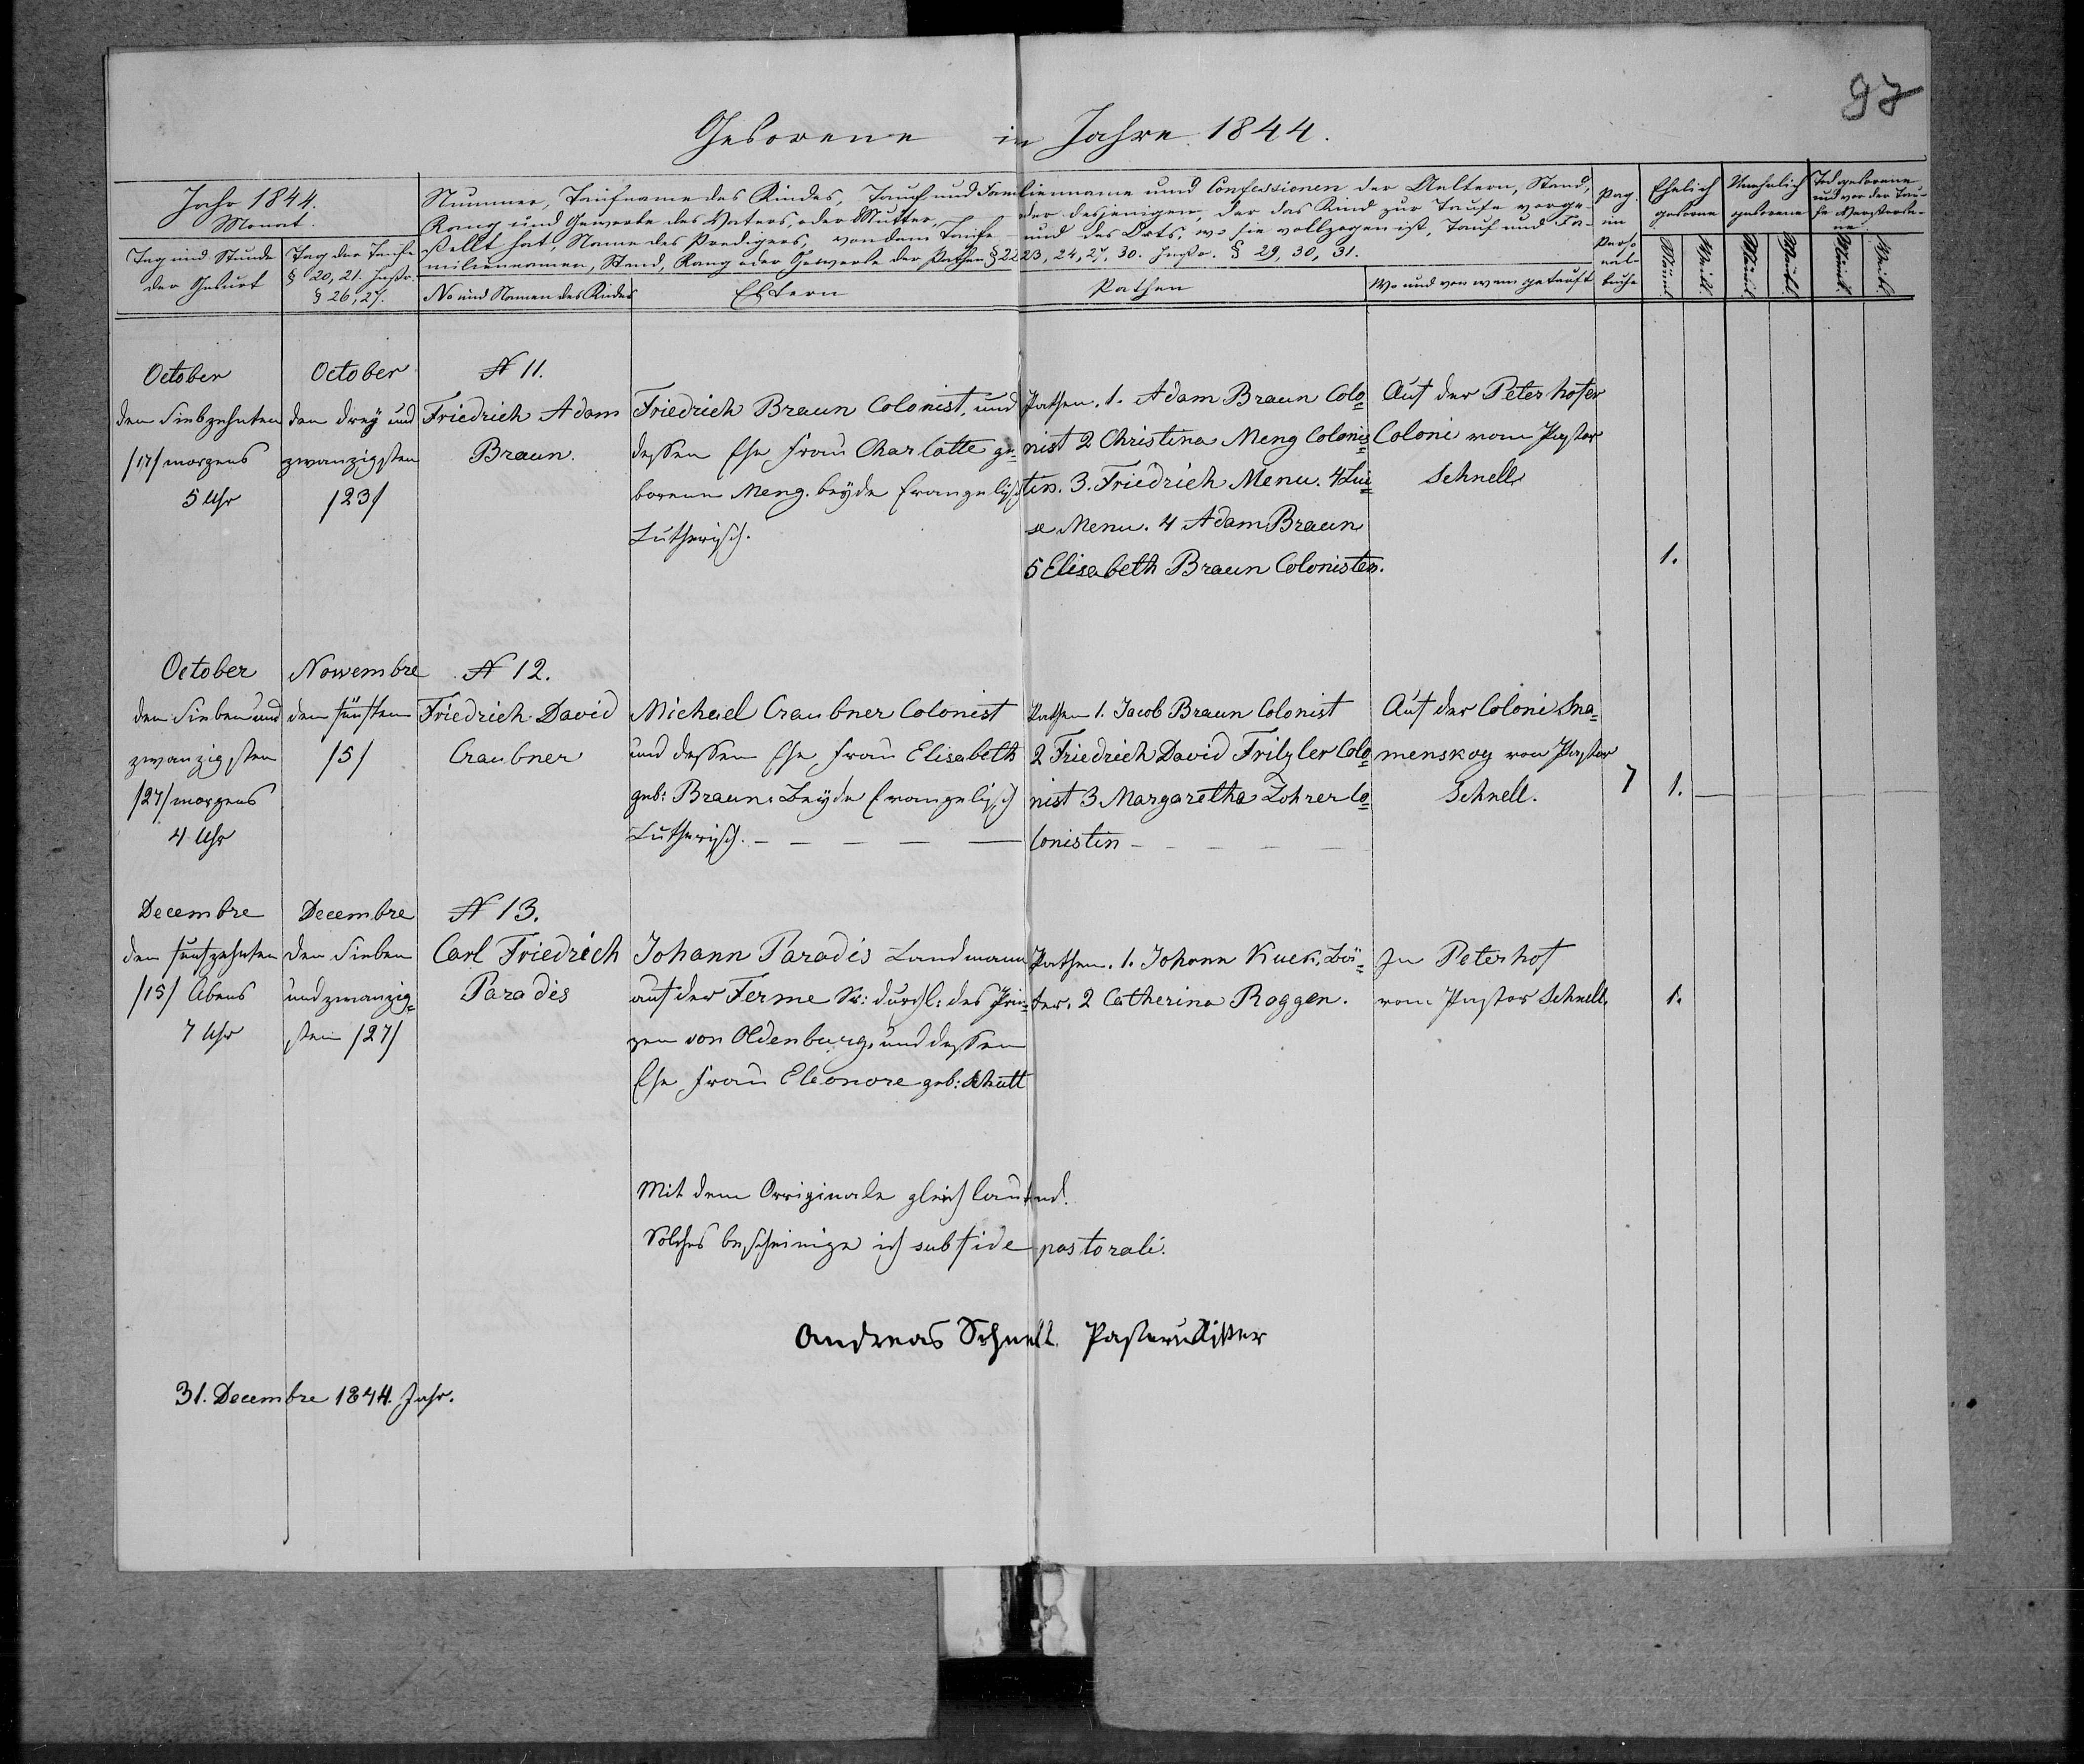 97
Geborene im Jahre 1844.
Jahr 1844.
Monat.
Tag und Stunde
der Geburt
Tag der Taufe
§ 20, 21. Instr.
§ 26, 27.
Nummer, Taufname des Kindes, Tauf und Familienname und Confessionen der Aeltern, Stand,
Rang und Gewerbe des Vaters, oder Mutter, oder desjenigen, der das Kind zur Taufe vorge-
stellt hat, Name des Predigers, von dem Taufe und des Orts, wo sie vollzogen ist, Tauf und Fa-
miliennamen, Stand, Rang oder Gewerbe der Pathen § 22 23, 24, 27, 30. Instr. § 29, 30, 31.
No und Namen des Kindes
Eltern
Pathen
Wo und von wem getauft
Pag.
im
Perso
nal-
buche
Ehelich
geborne
Unehelich
geborene
Tod geborene
und vor der Tau-
fe Verstorbe-
ne
Männl.
Weibl.
Männl.
Weibl.
Männl.
Weibl.
October
den Siebzehnten
/17/ morgens
5 Uhr
October
den drey und
zwanzigsten
/23/
N 11.
Friedrich Adam
Braun.
Friedrich Braun Colonist, und
dessen Ehe Frau Charlotte ge=
borene Meng. beyde Evangelisch
Lutherisch.
Pathen. 1. Adam Braun Colo=
nist 2 Christina Meng Colonis=
tin. 3. Friedrich Menu. 4 Lui=
se Menu. 4 Adam Braun
5 Elisabeth Braun Colonisten.
Auf der Peterhofer
Coloni vom Pastor
Schnell
1.
October
den Sieben und
zwanzigsten
/27/ morgens
4 Uhr
Nowembre
den fünften
/5/
N 12.
Friedrich David
Craubner
Michael Craubner Colonist
und dessen Ehe Frau Elisabeth
geb: Braun. Beyde Evangelisch
Lutherisch.
Pathen 1. Jacob Braun Colonist
2 Friedrich David Fritzler Colo=
nist 3 Margaretha Lohrer Co=
lonistin
Auf der Coloni Sna=
menskoy von Pastor
Schnell.
7
1.
Decembre
den funfzehnten
/15/ Abens
7 Uhr
Decembre
den Sieben
und zwanzig=
sten /27/
N 13.
Carl Friedrich
Paradies
Johann Paradis Landmann
auf der Ferme Sr: Durchl: des Prin=
zen von Oldenburg, und dessen
Ehe Frau Eleonore geb: Schutt
Pathen. 1. Johann Kuck,
2 Catherina Roggen.
In Peterhof
vom Pastor Schnell.
1.
Mit dem Orriginale gleich lautend.
Solches bescheinige ich sub fide pastorali.
Andreas Schnell. Pastor u Ritter
31. Decembre 1844. Jahr.